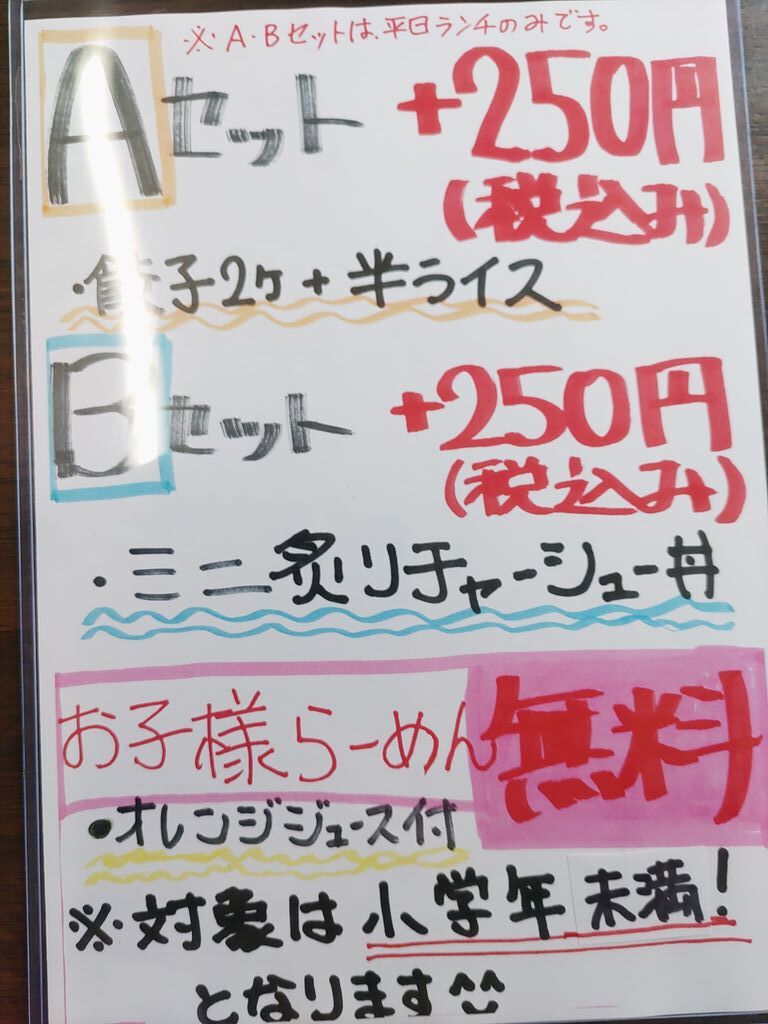 ※A・Bセットは、平日ランチのみです。
Aセット +250円
(税込み)
・餃子2ケ+半ライス
Bセット +250円
(税込み)
・ミニ炙りチャーシュー丼
お子様らーめん 無料
・オレンジジュース付
※対象は小学年未満!
となります^^